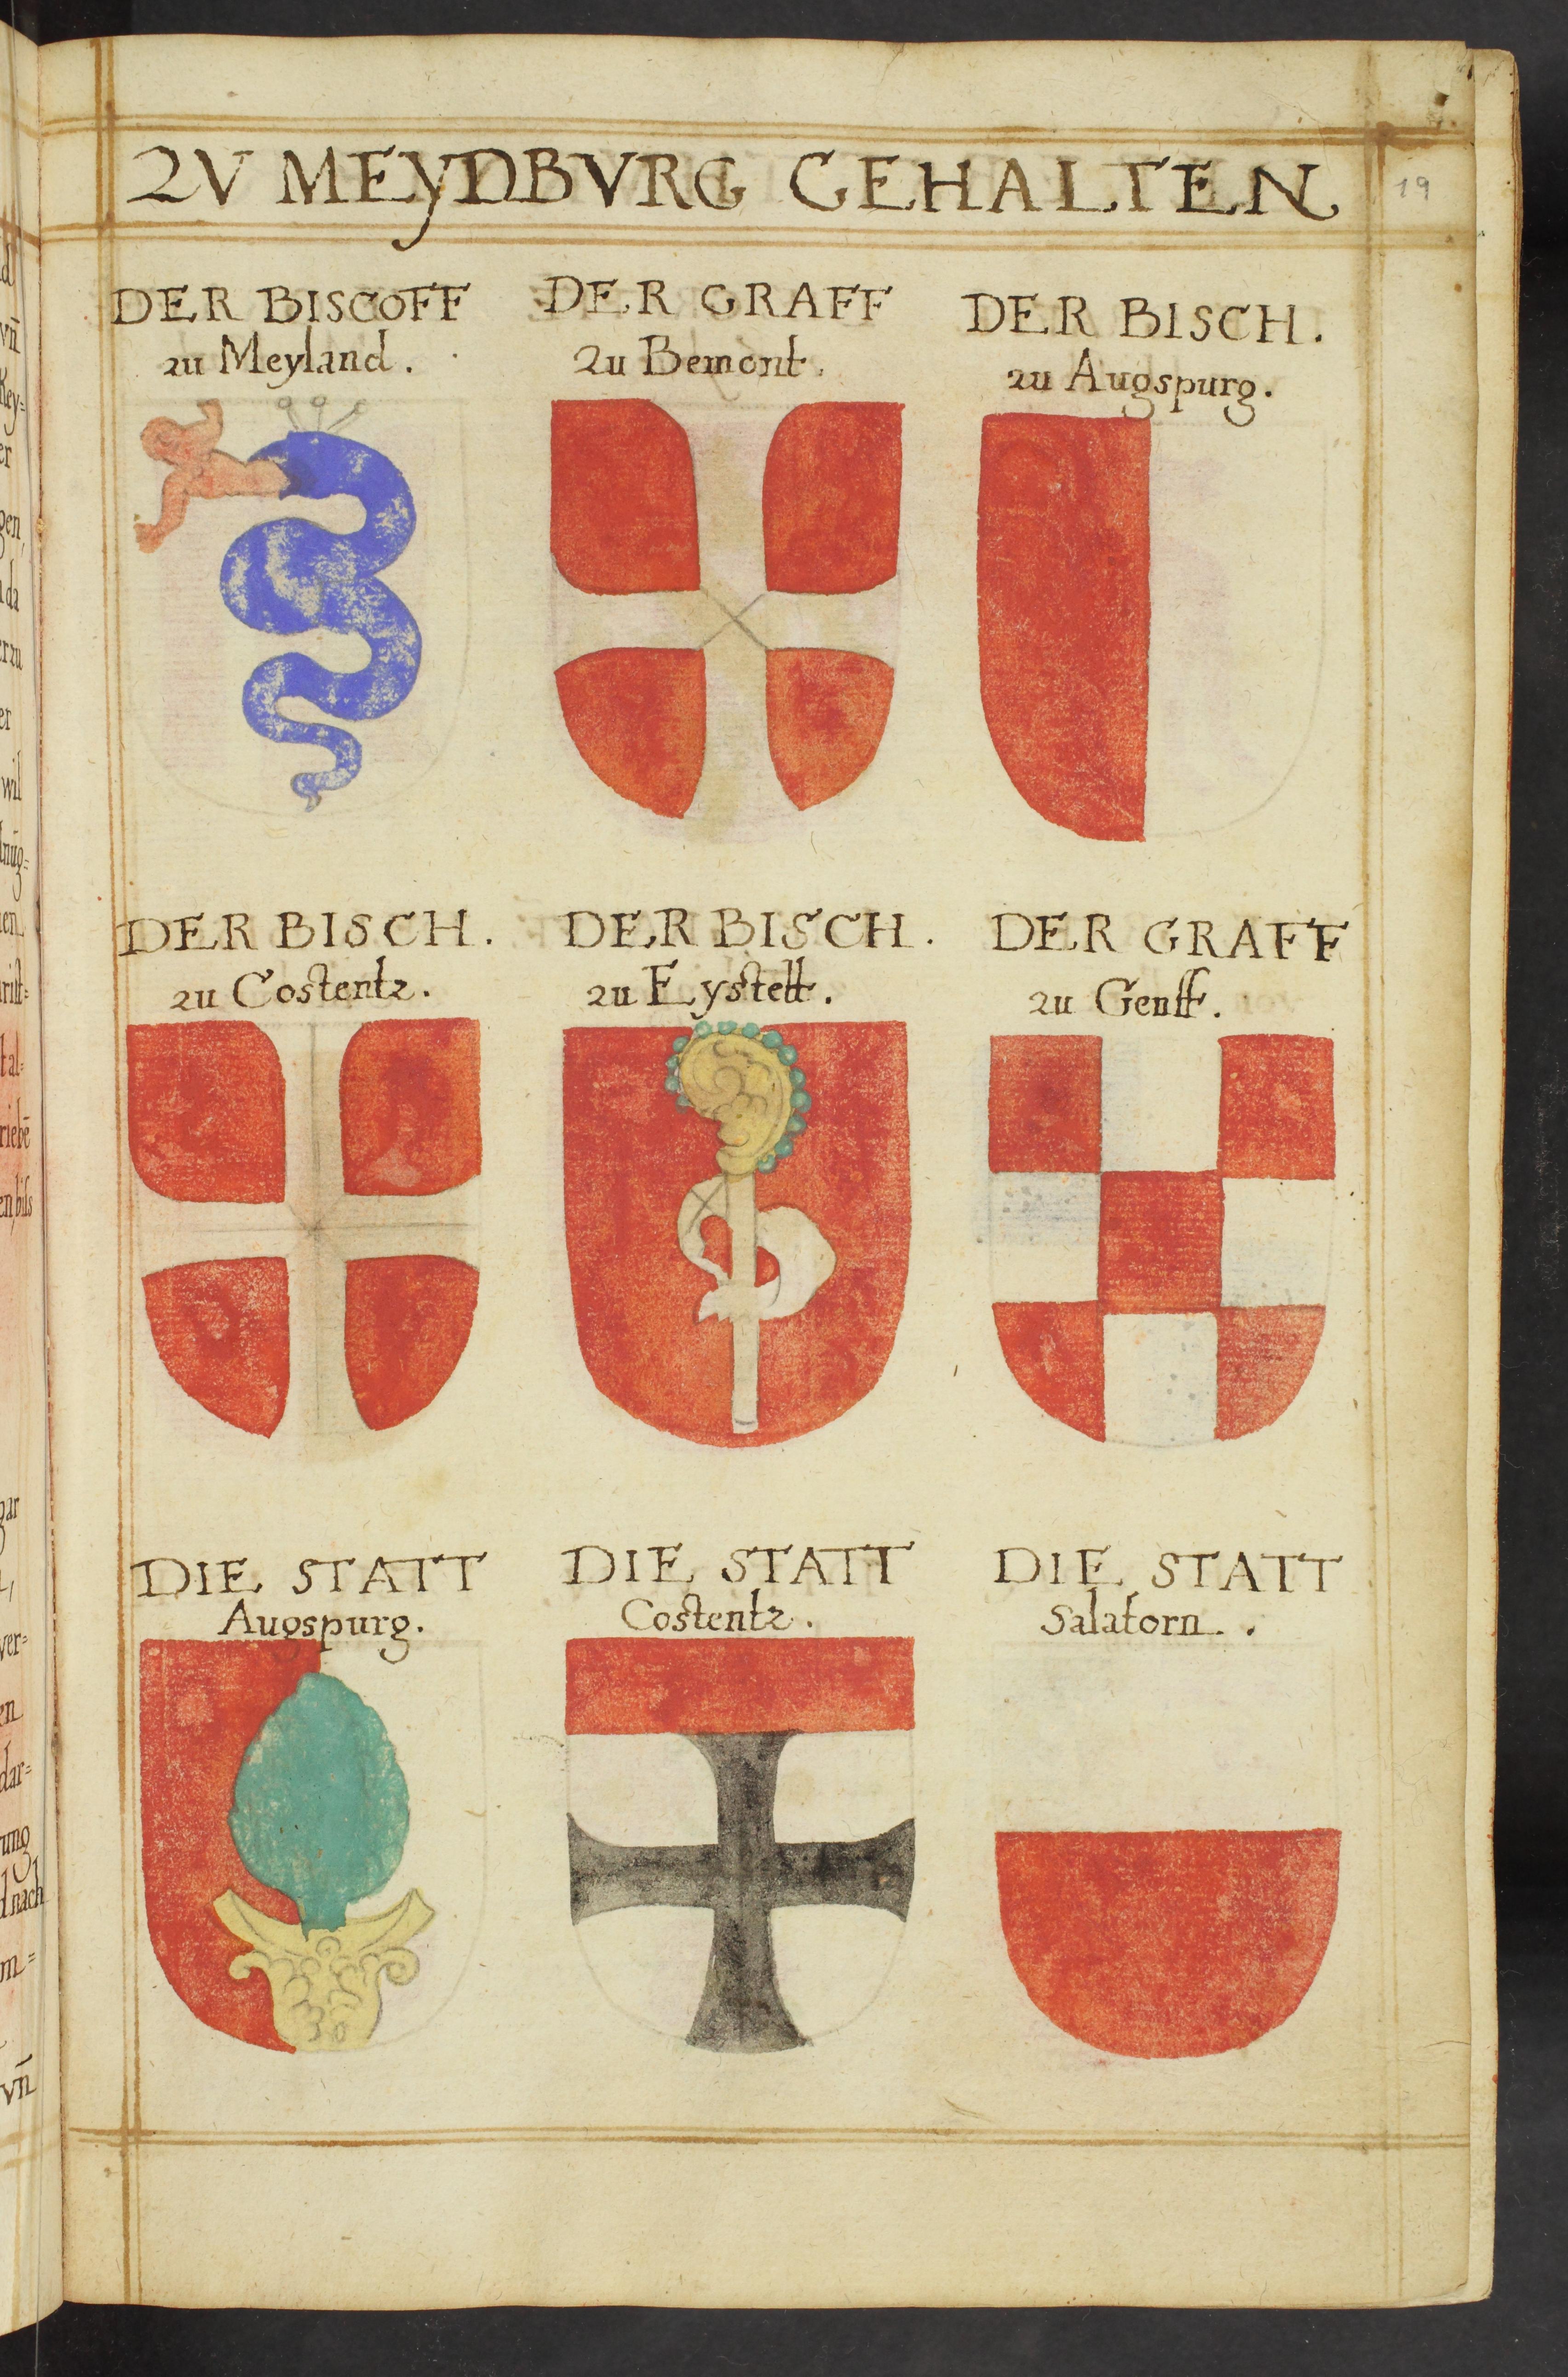 ZV MEyDBVRG GEHALTEN
19
DER BISCOFF
zu Meyland.
DER GRAFF
Zu Bemont.
DER BISCH.
zu Augspurg.
DER BISCH.
zu Costentz.
DER BISCH.
zu Eystett.
DER GRAFF
zu Genff.
DIE STATT
Augspurg.
DIE STATT
Costentz.
DIE STATT
Salatorn.